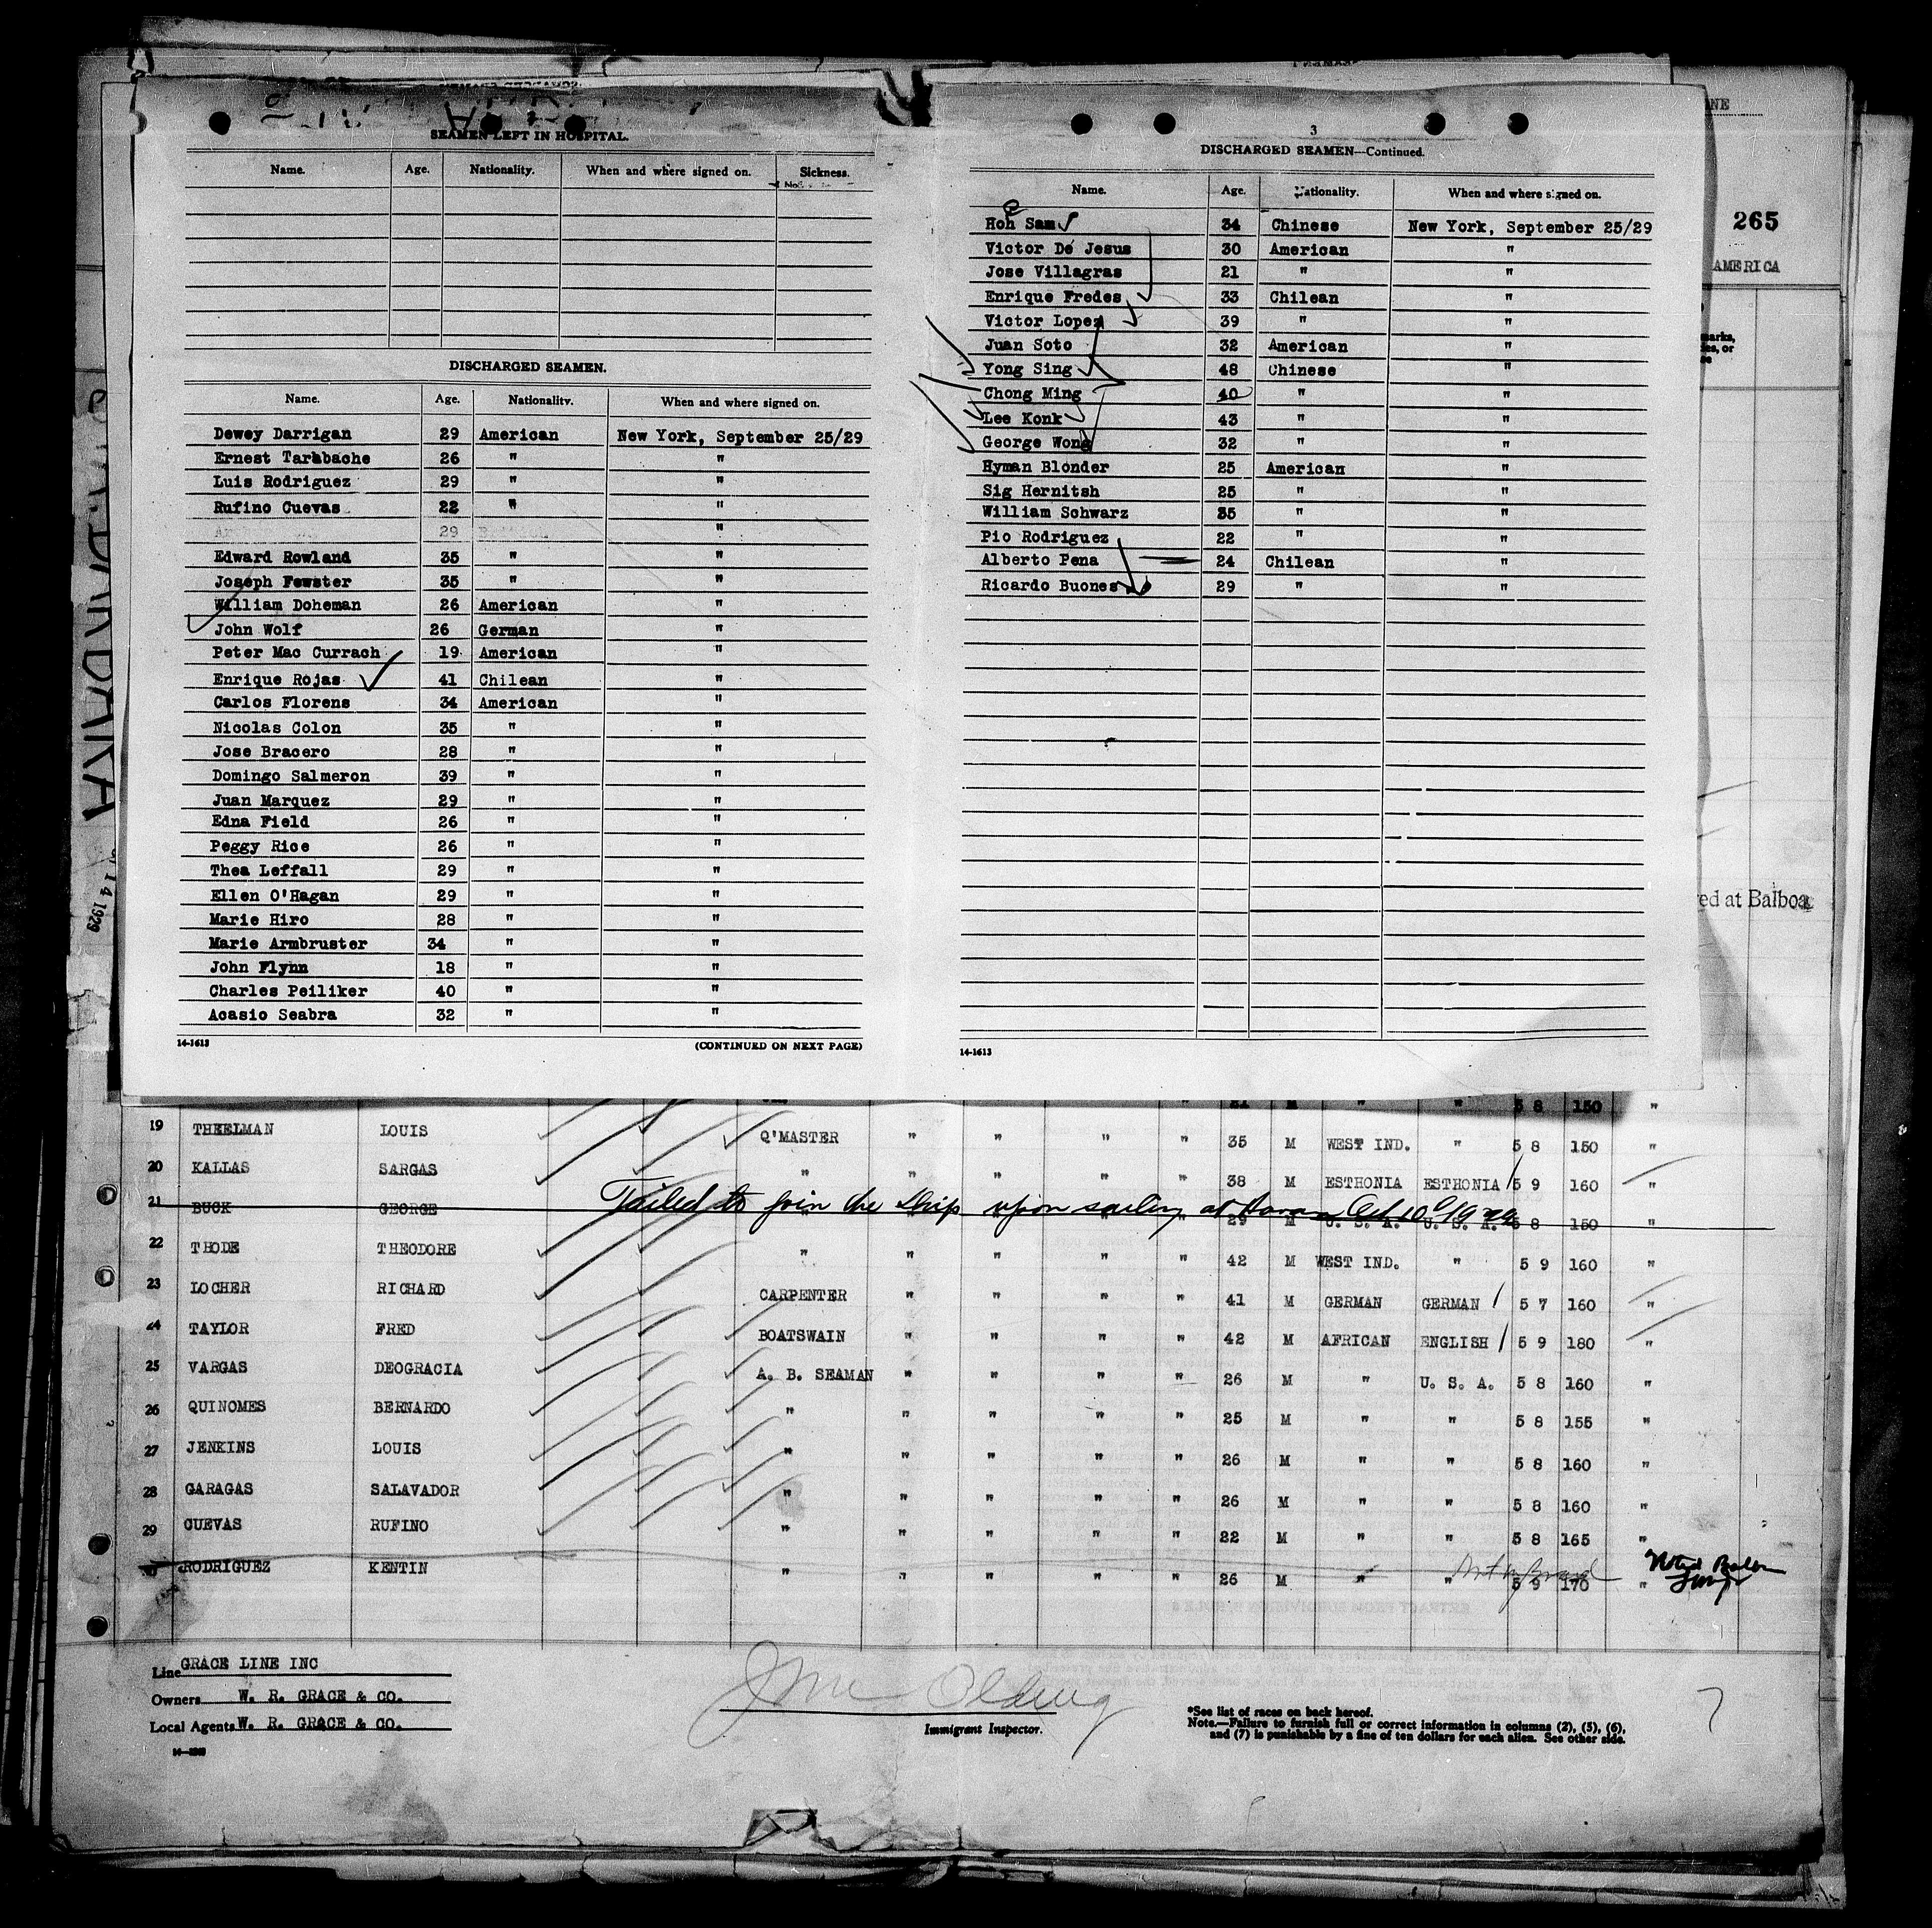 SEAMEN LEFT IN HOSPITAL.
Name. Age. Nationality. When and where signed on. Sickness.
DISCHARGED SEAMEN.
Name. Age. Nationality. When and where signed on.
Dewey Darrigan 29 American New York, September 25/29
Ernest Tarabache 26 " "
Luis Rodriguez 29 " "
Rufino Cuevas 22 " "
29 "
Edward Rowland 35 " "
Joseph Fewster 35 " "
William Doheman 26 American "
John Wolf 26 German "
Peter Mac Currach 19 American "
Enrique Rojas 41 Chilean "
Carlos Florens 34 American "
Nicolas Colon 35 " "
Jose Bracero 28 " "
Domingo Salmeron 39 " "
Juan Marquez 29 " "
Edna Field 26 " "
Peggy Rice 26 " "
Thea Leffall 29 " "
Ellen O'Hagan 29 " "
Marie Hiro 28 " "
Marie Armbruster 34 " "
John Flynn 18 " "
Charles Peiliker 40 " "
Acasio Seabra 32 " "
14-1613 (CONTINUED ON NEXT PAGE)
3
DISCHARGED SEAMEN—Continued.
Name. Age. Nationality. When and where signed on.
Sam 34 Chinese New York, September 25/29
Victor De Jesus 30 American "
Jose Villagras 21 " "
Enrique Fredes 33 Chilean "
Victor Lopez 39 " "
Juan Soto 32 American "
Yong Sing 48 Chinese "
Chong Ming 40 " "
Lee Konk 43 " "
George Wong 32 " "
Hyman Blonder 25 American "
Sig Hernitsh 25 " "
William Schwarz 35 " "
Pio Rodriguez 22 " "
Alberto Pena 24 Chilean "
Ricardo Buones 29 " "
14-1613
NE
265
AMERICA
at Balboa
14 1929
M " " 5 8 150 "
19 THEELMAN LOUIS Q'MASTER " " " " 35 M WEST IND. " 5 8 150 "
20 KALLAS SARGAS " " " " " 38 M ESTHONIA ESTHONIA 5 9 160 "
21 BUCK GEORGE 29 M U. S. A. U. S. A. 5 8 150 "
Failed to join the ship upon sailing at Oct 10 1929
22 THODE THEODORE " " " " " 42 M WEST IND. " 5 9 160 "
23 LOCHER RICHARD CARPENTER " " " " 41 M GERMAN GERMAN 5 7 160 "
24 TAYLOR FRED BOATSWAIN " " " " 42 M AFRICAN ENGLISH 5 9 180 "
25 VARGAS DEOGRACIA A. B. SEAMAN " " " " 26 M " U. S. A. 5 8 160 "
26 QUINOMES BERNARDO " " " " " 25 M " " 5 8 155 "
27 JENKINS LOUIS " " " " " 26 M " " 5 8 160 "
28 GARAGAS SALAVADOR " " " " " 26 M " " 5 8 160 "
29 CUEVAS RUFINO " " " " " 22 M " " 5 8 165 "
RODRIGUEZ KENTIN " " " " " 26 M " 5 9 170 "
Line GRACE LINE INC
Owners W. R. GRACE & CO.
Local Agents W. R. GRACE & CO.
Immigrant Inspector.
*See list of races on back hereof.
Note.—Failure to furnish full or correct information in columns (2), (5), (6),
and (7) is punishable by a fine of ten dollars for each alien. See other side.
7